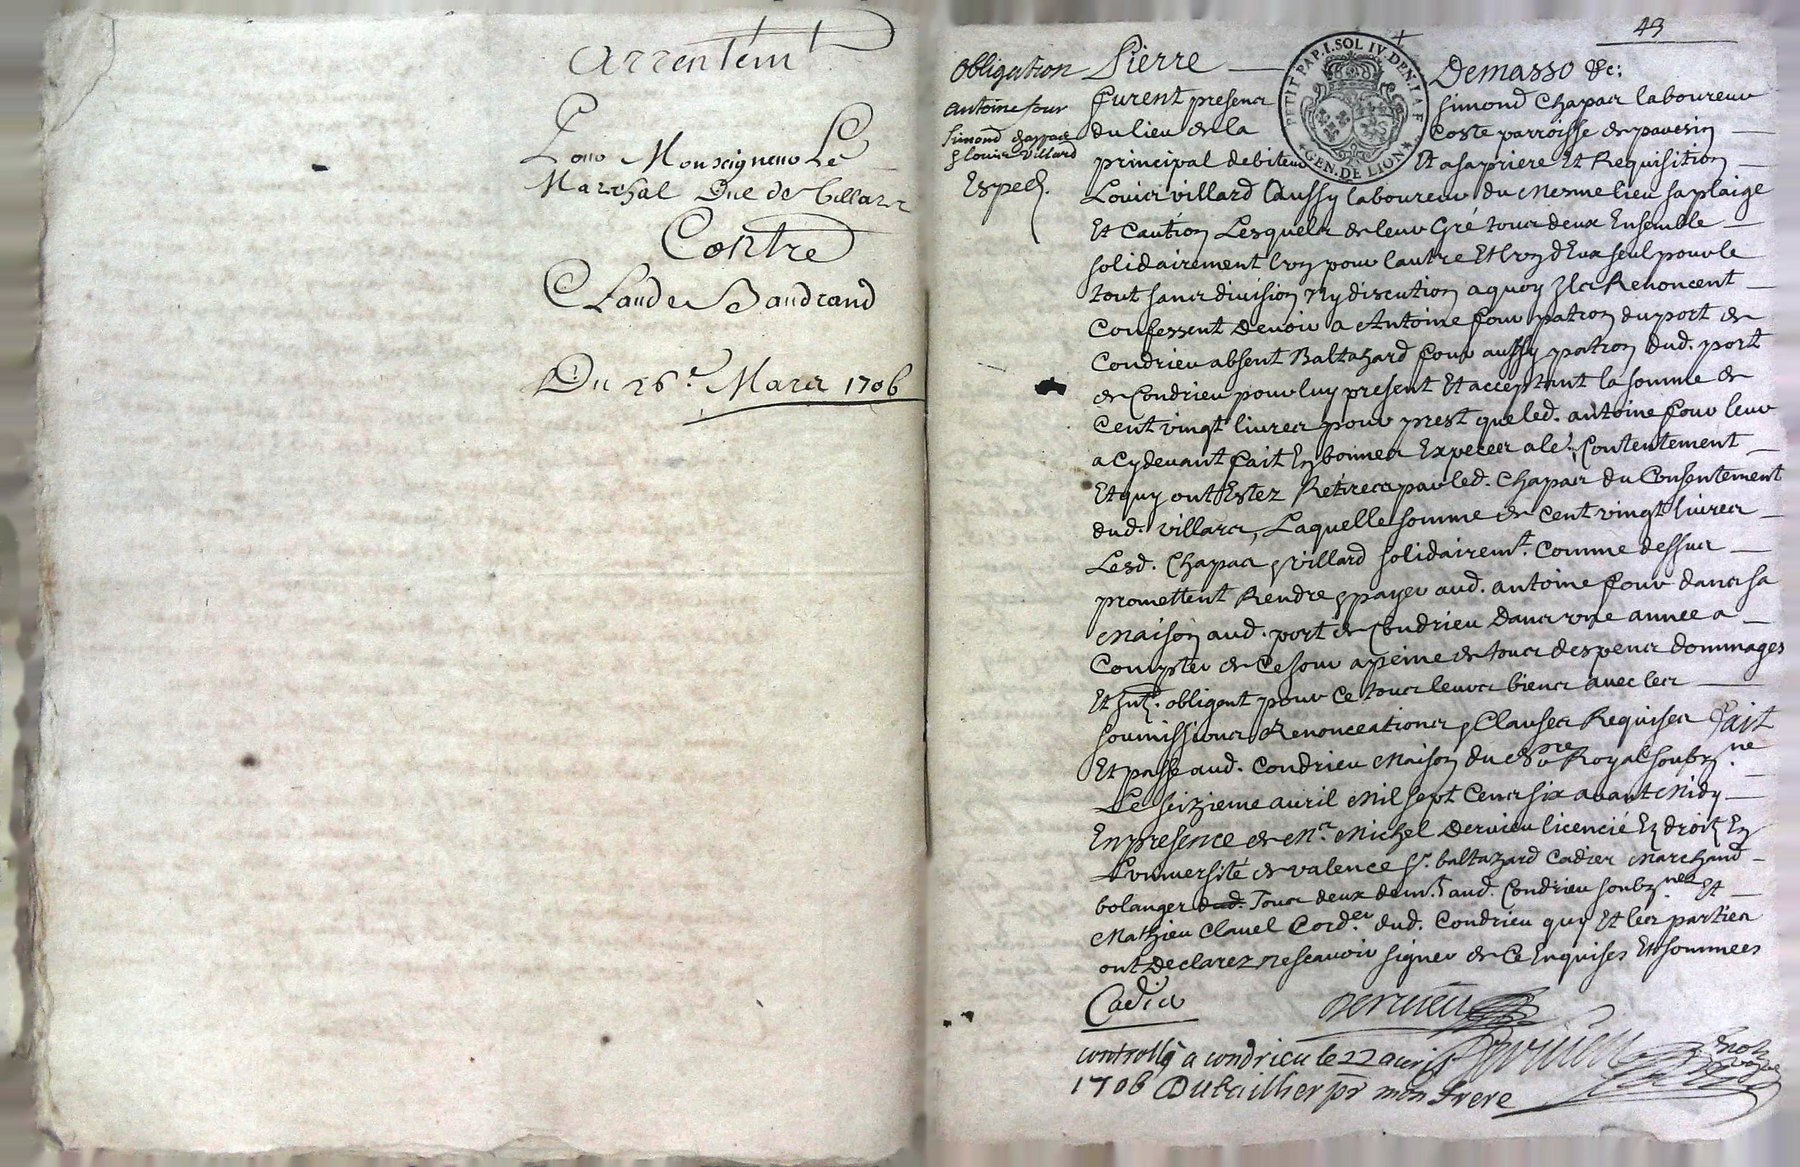 Arrentem.t
Pour Monseigneur Le
Marechal Duc de Villars
Contre
Claude Baudrand
Du 26.e Mars 1706
49
Obligation
Antoine four
Simond Chappas
& Louis Villard
Exped.
Pierre — Demasso &c:
furent presens Simond Chapas laboureur
du lieu de la Coste parroisse de pavesin —
principal debiteur Et a sa priere Et Requisition —
Louis villard Aussy laboureur du Mesme lieu sa plaige
Et Caution Lesquels de leur Gré tous deux Ensemble —
solidairement l'vn pour l'autre Et l'vn d'Eux seul pour le
tout sans division Ny discution a quoy Ils Renoncent —
Confessent devoir a Antoine four patron du port de
Condrieu absent Baltazard four aussy patron dud. port
de Condrieu pour luy present Et acceptant la somme de
Cent vingt livres pour prest que led. antoine four leur
a Cy devant fait En bonnes Expeces a le.r Contentement —
Et quy ont Estez Retirees par led. Chapas du Consentement
dud. villard, Laquelle somme de Cent vingt livres —
Lesd. Chapas & villard solidairem.t Comme dessus —
promettent Rendre & payer aud. antoine four dans sa
Maison aud. port de Condrieu dans vne annee a —
Compter de Ce jour a peine de tous despens dommages
Et Int. obligent pour Ce tous leurs biens avec les —
soumissions Renonceations & Clauses Requises fait
Et passé aud. Condrieu Maison du No.re Royal soubz.né
Le seizieme avril Mil sept Cens six avant Midy —
En presence de M.r Michel Dervieu licencié En droit En
L'vniversité de valence S.r baltazard Cadier Marchand —
bolanger dud. Tous deux dem.t aud. Condrieu soubz.nez Et —
Mathieu Clavel Cord.er dud. Condrieu quy Et les parties
ont Declarez ne scavoir signer de Ce Enquises Et sommees
Cadier Dervieu
controllé a condrieu le 22 avril Dervieu
1706 Dutaillier pr mon frere
PETIT PAP. I. SOL IV. DEN. LA F.
GEN. DE LION